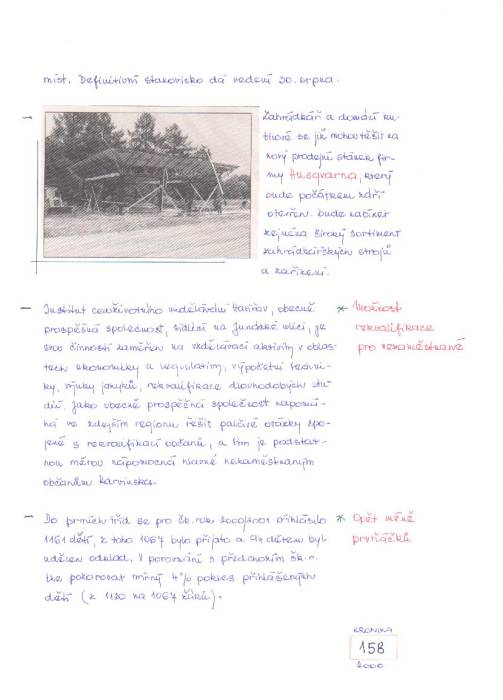 míst. Definitivní stanovisko dá vedení 30. srpna.
– Zahrádkáři a domácí ku-
tilové se již mohou těšit na
nový prodejní stánek fir-
my Husqvarna, který
bude počátkem září
otevřen. bude nabízet
zejména široký sortiment
zahrádkářských strojů
a zařízení.
– Institut celoživotního vzdělávání Havířov, obecně
prospěšná společnost, sídlící na Junácké ulici, je
svou činností zaměřen na vzdělávací aktivity v oblas-
tech ekonomiky a legislativy, výpočetní techni-
ky, výuky jazyků, rekvalifikace dlouhodobých stu-
dií. Jako obecně prospěšná společnost napomá-
há ve zdejším regionu řešit palčivé otázky spo-
jené s rekvalifikací občanů, a tím je podstat-
nou měrou nápomocna hlavně nezaměstnaným
občanům Karvinska.
* Možnost
rekvalifikace
pro nezaměstnané
– Do prvních tříd se pro šk. rok 2000/2001 přihlásilo
1161 dětí, z toho 1067 bylo přijato a 94 dětem byl
udělen odklad. V porovnání s předchozím šk. r.
lze pozorovat mírný 4% pokles přihlášených
dětí (z 1120 na 1067 žáků).
* Opět méně
prvňáčků
KRONIKA
158
2000